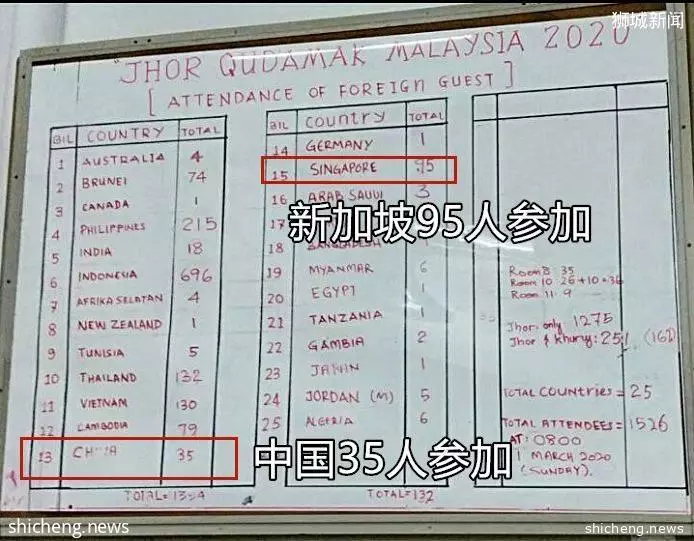 狮城新闻
JHOR QUDAMAK MALAYSIA 2020
[ATTENDANCE OF FOREIGN GUEST]
BIL COUNTRY TOTAL
1 AUSTRALIA 4
2 BRUNEI 74
3 CANADA 1
4 PHILIPPINES 215
5 INDIA 18
6 INDONESIA 696
7 AFRIKA SELATAN 4
8 NEW ZEALAND 1
9 TUNISIA 5
10 THAILAND 132
11 VIETNAM 130
12 CAMBODIA 79
13 35
TOTAL=
BIL Country TOTAL
14 GERMANY 1
15 SINGAPORE 95
16 ARAB SAUDI 3
17
18 BANGLADESH
新加坡95人参加
19 MYANMAR 6
20 EGYPT 1
21 TANZANIA 1
22 GAMBIA 2
23 1
24 JORDAN (M) 5
25 ALGERIA 6
中国35人参加
TOTAL=132
Room 8 35
Room 10 26+10=36
Room 11 9
Jhor only 1275
Jhor & Khuruj: 251
TOTAL COUNTRIES = 25
TOTAL ATTENDEES = 1526
AT: 0800
1 MARCH 2020
(SUNDAY).
shicheng.news
shicheng.news